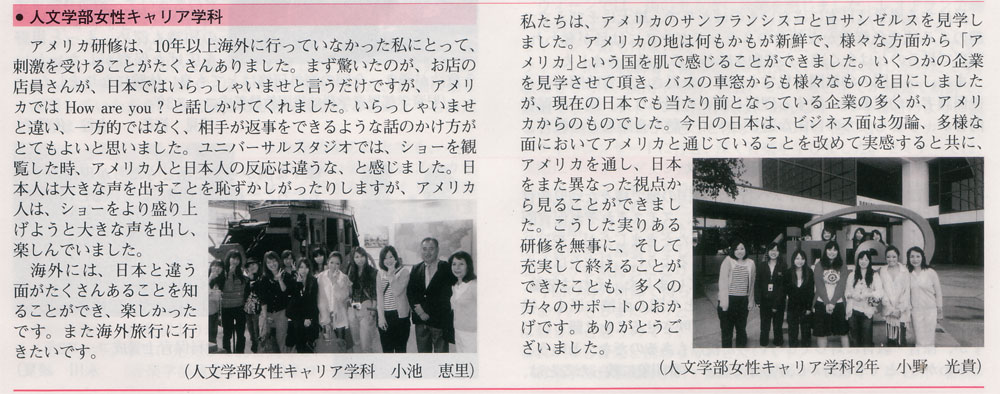 ● 人文学部女性キャリア学科
アメリカ研修は、10年以上海外に行っていなかった私にとって、
刺激を受けることがたくさんありました。まず驚いたのが、お店の
店員さんが、日本ではいらっしゃいませと言うだけですが、アメリ
カでは How are you ? と話しかけてくれました。いらっしゃいませ
と違い、一方的ではなく、相手が返事をできるような話のかけ方が
とてもよいと思いました。ユニバーサルスタジオでは、ショーを観
覧した時、アメリカ人と日本人の反応は違うな、と感じました。日
本人は大きな声を出すことを恥ずかしがったりしますが、アメリカ
人は、ショーをより盛り上
げようと大きな声を出し、
楽しんでいました。
海外には、日本と違う
面がたくさんあることを知
ることができ、楽しかった
です。また海外旅行に行
きたいです。
（人文学部女性キャリア学科　小池　恵里）
私たちは、アメリカのサンフランシスコとロサンゼルスを見学し
ました。アメリカの地は何もかもが新鮮で、様々な方面から「ア
メリカ」という国を肌で感じることができました。いくつかの企業
を見学させて頂き、バスの車窓からも様々なものを目にしました
が、現在の日本でも当たり前となっている企業の多くが、アメリ
カからのものでした。今日の日本は、ビジネス面は勿論、多様な
面においてアメリカと通じていることを改めて実感すると共に、
アメリカを通し、日本
をまた異なった視点か
ら見ることができまし
た。こうした実りある
研修を無事に、そして
充実して終えることが
できたことも、多くの
方々のサポートのおか
げです。ありがとうご
ざいました。
（人文学部女性キャリア学科2年　小野　光貴）